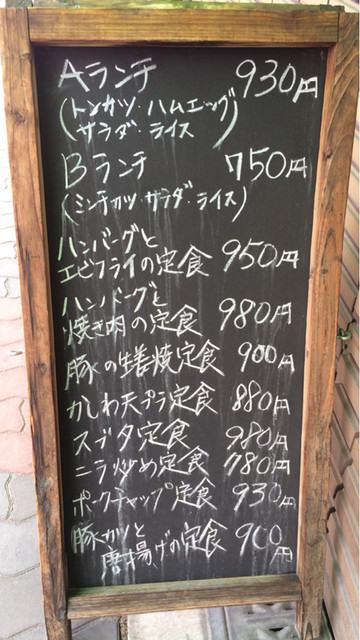 Aランチ 930円
(トンカツ・ハムエッグ
サラダ・ライス)
Bランチ 750円
(ミンチカツ・サラダ・ライス)
ハンバーグと
エビフライの定食 950円
ハンバーグと
焼き肉の定食 980円
豚の生姜焼定食 900円
かしわ天プラ定食 880円
スブタ定食 980円
ニラ炒め定食 780円
ポークチャップ定食 930円
豚カツと
唐揚げの定食 900円